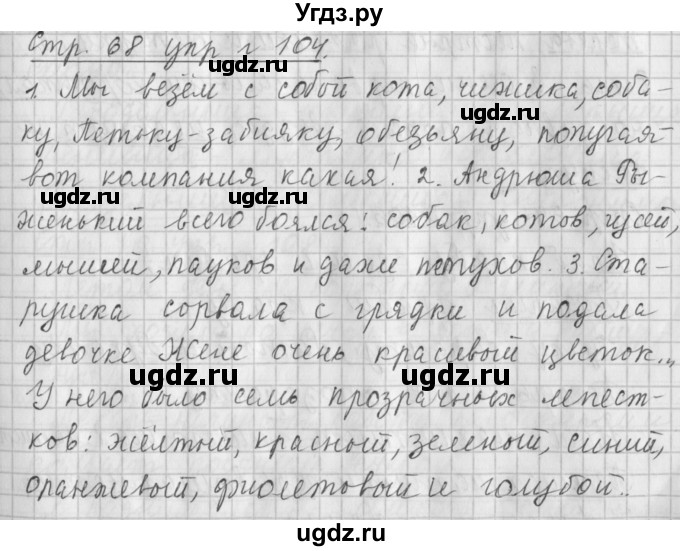 Угдз.ру
Стр. 68 упр г 104.
gdz.ru
1. Мы везём с собой кота, чижика, соба-
gdz.ru
ку, Петьку-забияку, обезьяну, попугая-
вот компания какая! 2. Андрюша Ры-
gdz.ru
женький всего боялся: собак, котов, гусей,
мышей, пауков и даже петухов. 3. Ста-
gdz.ru
рушка сорвала с грядки и подала
девочке Жене очень красивый цветок...
ugdz.ru ugdz.ru
У него было семь прозрачных лепест-
ков: жёлтый, красный, зеленый, синий,
оранжевый, фиолетовый и голубой.
ugdz.ru ugdz.ru
Угдз.ру